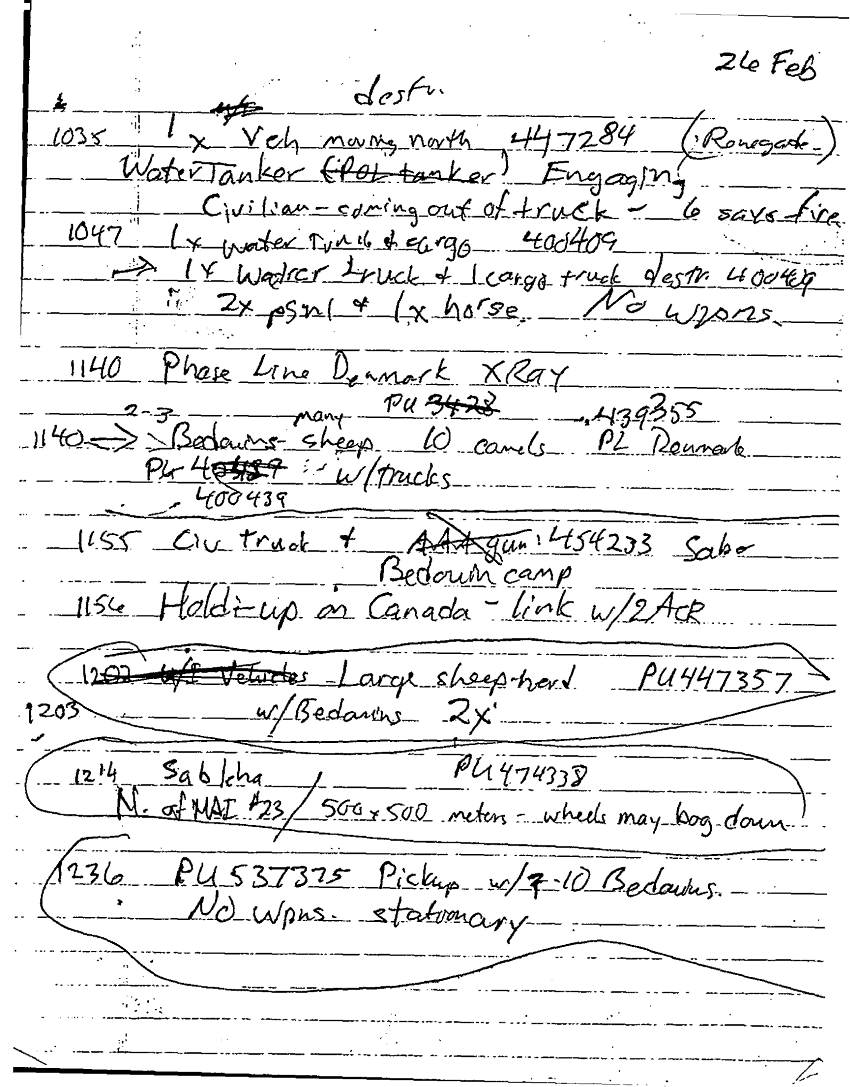 26 Feb
destr.
1035 1 x Veh moving north 447284 (Renegade)
Water Tanker (POL tanker) Engaging
Civilian - coming out of truck - 6 says fire
1047 1x water truck & cargo 400409
→ 1x Water truck & 1 cargo truck destr. 400409
2x psnl & 1x horse. No wpns.
1140 Phase Line Denmark XRay
2-3 many PU 3428 439355
1140 → Bedouins sheep 10 camels PL Denmark
PU w/trucks
400439
1155 Civ truck & AAA gun: 454233 Saber
Bedouin camp
1156 Hold-up on Canada - link w/2ACR
1202 U/I Vehicles Large sheep herd PU447357
1203 w/Bedouins 2x
1214 Sabkha PU474338
N. of NAI #23/ 500x500 meters - wheels may bog down
1236 PU537375 Pickup w/7-10 Bedouins.
No wpns. stationary